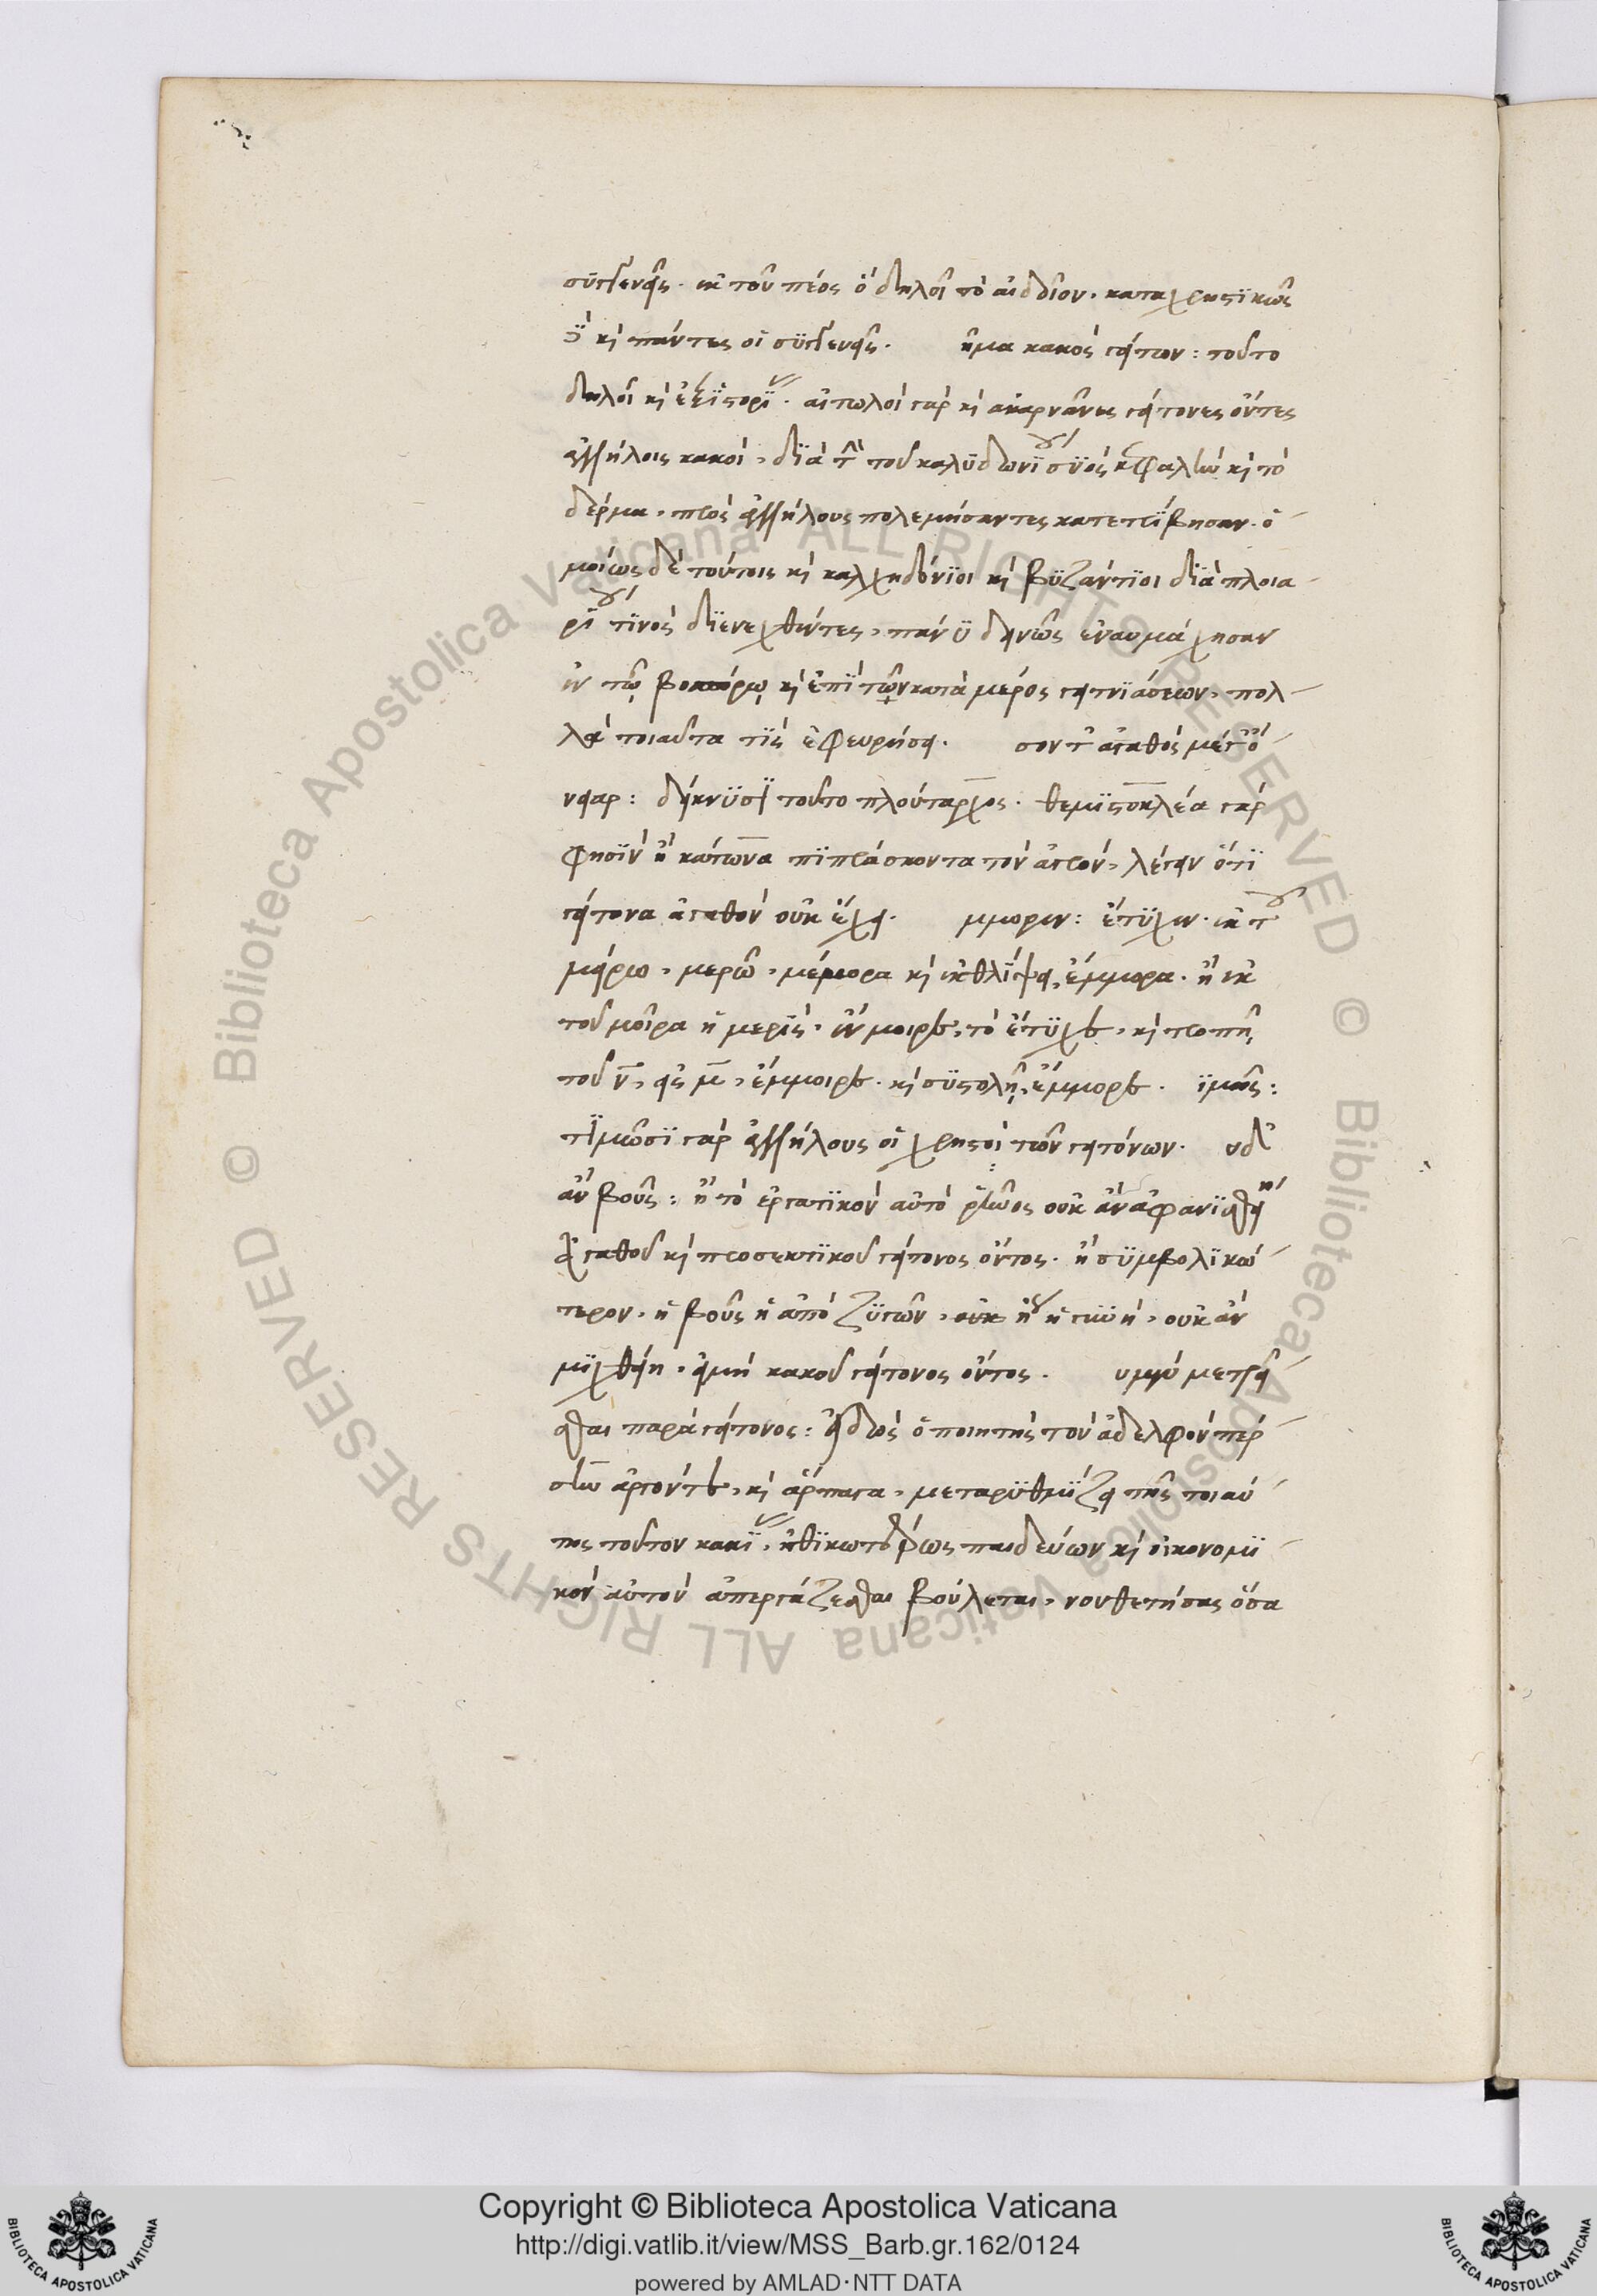 συγγενεῖς. ἐκ τοῦ πέος ὃ δηλοῖ τὸ αἰδοῖον. καταχρηστϊκῶς
δὲ κὶ πάντες οἱ συγγενεῖς. ῆμα κακὸς γείτων: τοῦτο
δηλοῖ κὶ ἐξ ἱστορΐ. αἰτωλοὶ γὰρ κὶ ἀκαρνᾶνες γείτονες ὄντες
ἀλλήλοις κακοὶ, δϊὰ τὴν τοῦ καλυδωνΐου συὸς κεφαλὴν κὶ τὸ
δέρμα, πρὸς ἀλλήλους πολεμήσαντες κατετρΐβησαν. ὁ
μοίως δὲ τούτοις κὶ καλχηδόνϊοι κὶ βϋζάντϊοι δϊὰ πλοια
ρίου τϊνὸς δϊενεχθέντες, πάνϋ δεινῶς ἐναυμάχησαν
ἐν τῷ βοσπόρῳ κὶ ἐπὶ τῶν κατὰ μέρος γειτνϊάσεων, πολ
λὰ τοιαῦτα τὶς ἐφευρήσει. σον τ' ἀγαθὸς μέγ' ὄ
νειαρ: δείκνϋσϊ τοῦτο πλούταρχος. θεμϊστοκλέα γάρ
φησϊν ἢ κάτωνα πϊπράσκοντα τὸν ἀγρὸν, λέγειν ὅτϊ
γείτονα ἀγαθὸν οὐκ ἔχει. μμορεν: ἔτϋχεν. ἐκ τοῦ
μείρω, μερῶ, μέμορα κὶ ἐκθλΐψει, ἔμμορα. ἢ ἐκ
τοῦ μοῖρα ἡ μερὶς, ἐν μοιρε, τὸ ἔτϋχε, κὶ τροπῇ
τοῦ ν, εἰς μ, ἔμμοιρε. κὶ συστολῇ, ἔμμορε. ϊμῆς:
τϊμῶσϊ γὰρ ἀλλήλους οἱ χρηστοὶ τῶν γειτόνων. υδ'
ἂν βοῦς: ἢ τὸ ἐργατϊκὸν αὐτὸ ζῶος οὐκ ἂν ἀφανϊσθείη
ἀγαθοῦ κὶ προσεκτϊκοῦ γείτονος ὄντος. ἢ συμβολϊκώ
τερον, ἡ βοῦς ἡ ἀπὸ ζυγῶν, οὐκ ἤγουν ἡ γυνὴ, οὐκ ἂν
μϊχθείη, εἰ μὴ κακοῦ γείτονος ὄντος. υ μὲν μετρεῖ
σθαι παρὰ γείτονος: εἰδὼς ὁ ποιητὴς τὸν ἀδελφὸν πέρ
σην ἀργόντε, κὶ ἅρπαγα, μεταρϋθμϊζει τῆς τοιαύ
της τοῦτον κακΐ, ἠθϊκωτέρως παιδεύων κὶ οἰκονομϊ
κὸν αὐτὸν ἀπεργάζεσθαι βούλεται, νουθετήσας ὅσα
Copyright © Biblioteca Apostolica Vaticana
http://digi.vatlib.it/view/MSS_Barb.gr.162/0124
powered by AMLAD·NTT DATA